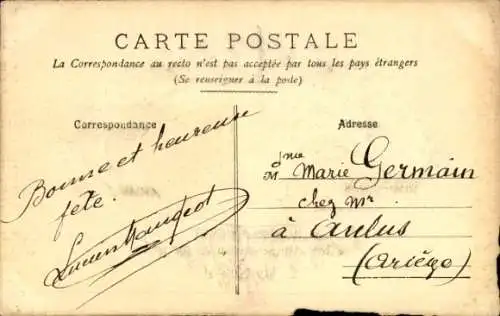 CARTE POSTALE
La Correspondance au recto n'est pas acceptée par tous les pays étrangers
(Se renseigner à la poste)
Correspondance
Adresse
Bonne et heureuse
fête.
Mme Marie Germain
chez Mr
à Aulus
(Ariège)